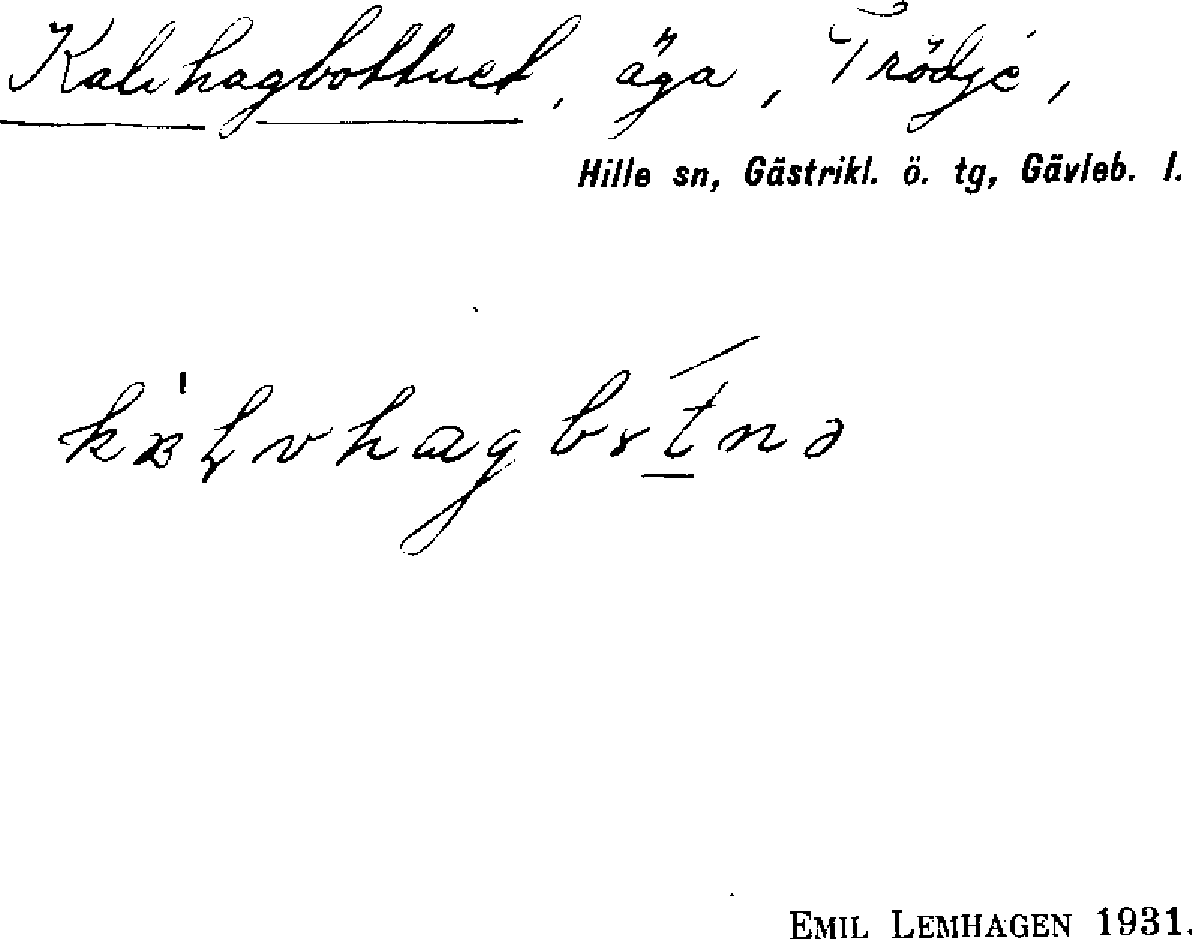 Kalvhagbottnet, äga, Trödje,
Hille sn, Gästrikl. ö. tg, Gävleb. l.
EMIL LEMHAGEN 1931.